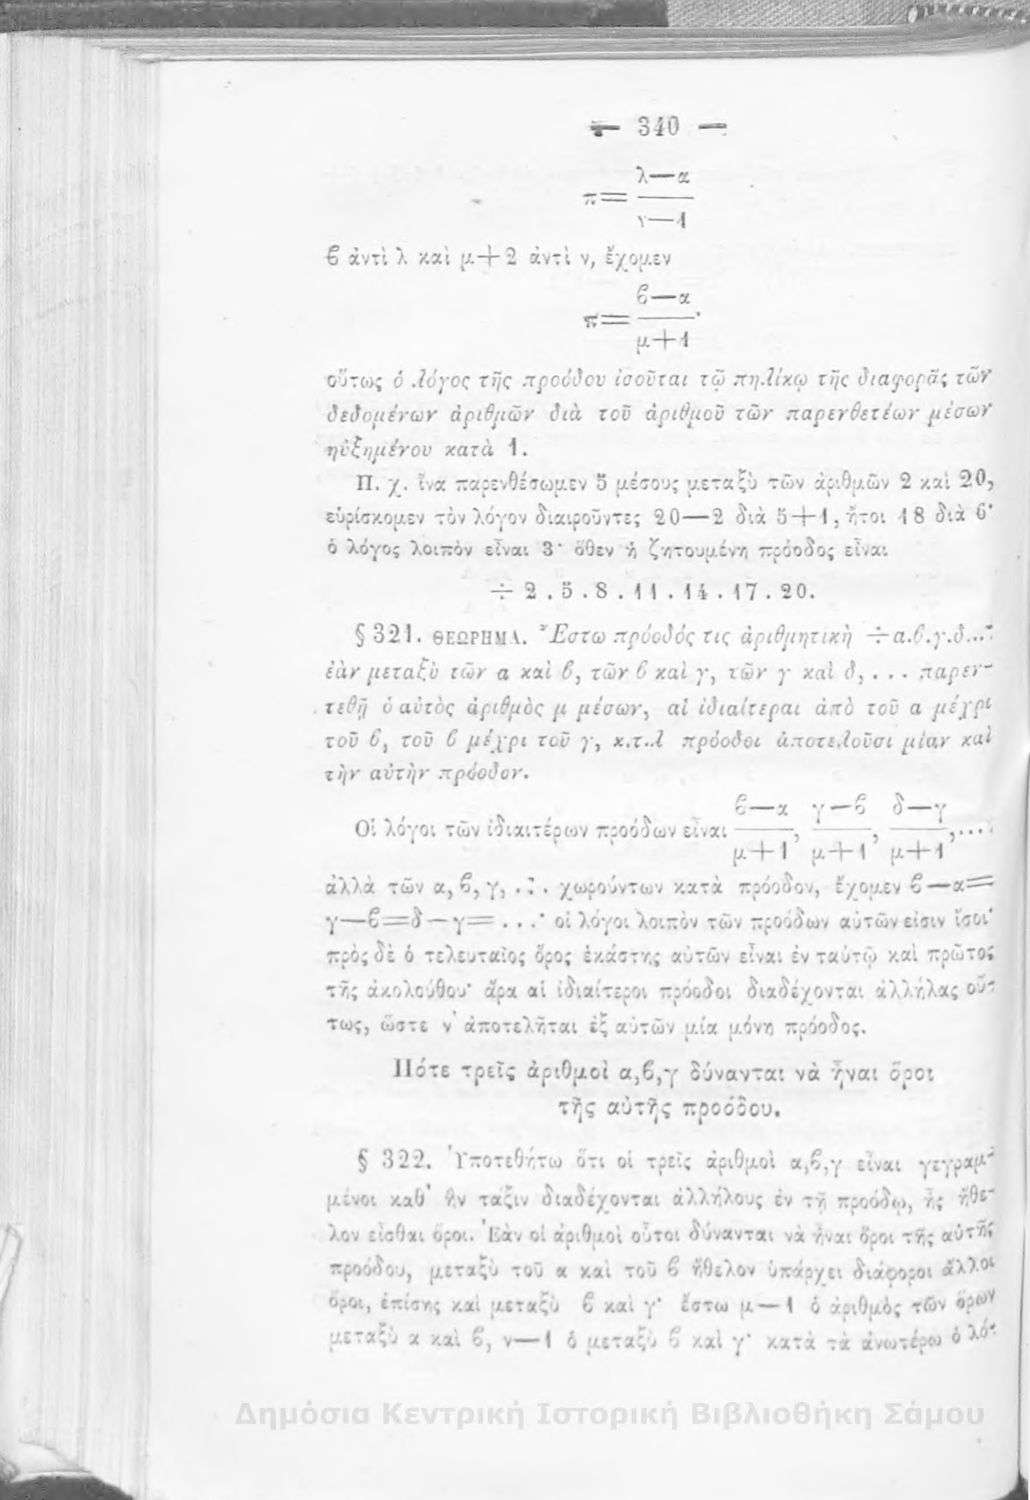 — 340 —
π = λ—α / ν—1
ϐ ἀντὶ λ καὶ μ+2 ἀντὶ ν, ἔχομεν
π = ϐ—α / μ+1 ·
οὕτως ὁ λόγος τῆς προόδου ἰσοῦται τῷ πηλίκῳ τῆς διαφορᾶς τῶν
δεδομένων ἀριθμῶν διὰ τοῦ ἀριθμοῦ τῶν παρενθετέων μέσων
ηὐξημένου κατὰ 1.
Π. χ. ἵνα παρενθέσωμεν 5 μέσους μεταξὺ τῶν ἀριθμῶν 2 καὶ 20,
εὑρίσκομεν τὸν λόγον διαιροῦντες 20—2 διὰ 5+1, ἤτοι 18 διὰ 6·
ὁ λόγος λοιπὸν εἶναι 3· ὅθεν ἡ ζητουμένη πρόοδος εἶναι
÷ 2 . 5 . 8 . 11 . 14 . 17 . 20.
§ 321. ΘΕΩΡΗΜΑ. Ἔστω πρόοδός τις ἀριθμητικὴ ÷ α.ϐ.γ.δ...·
ἐὰν μεταξὺ τῶν α καὶ ϐ, τῶν ϐ καὶ γ, τῶν γ καὶ δ, . . . παρεν-
τεθῇ ὁ αὐτὸς ἀριθμὸς μ μέσων, αἱ ἰδιαίτεραι ἀπὸ τοῦ α μέχρι
τοῦ ϐ, τοῦ ϐ μέχρι τοῦ γ, κ.τ.λ πρόοδοι ἀποτελοῦσι μίαν καὶ
τὴν αὐτὴν πρόοδον.
Οἱ λόγοι τῶν ἰδιαιτέρων προόδων εἶναι ϐ—α / μ+1, γ—ϐ / μ+1, δ—γ / μ+1, ....
ἀλλὰ τῶν α, ϐ, γ, . . . χωρούντων κατὰ πρόοδον, ἔχομεν ϐ—α=
γ—ϐ=δ—γ= . . .· οἱ λόγοι λοιπὸν τῶν προόδων αὐτῶν εἰσιν ἴσοι·
πρὸς δὲ ὁ τελευταῖος ὅρος ἑκάστης αὐτῶν εἶναι ἐν ταὐτῷ καὶ πρῶτος
τῆς ἀκολούθου· ἄρα αἱ ἰδιαίτεροι πρόοδοι διαδέχονται ἀλλήλας οὕ-
τως, ὥστε ν' ἀποτελῆται ἐξ αὐτῶν μία μόνη πρόοδος.
Πότε τρεῖς ἀριθμοὶ α,ϐ,γ δύνανται νὰ ἦναι ὅροι
τῆς αὐτῆς προόδου.
§ 322. Ὑποτεθήτω ὅτι οἱ τρεῖς ἀριθμοὶ α,ϐ,γ εἶναι γεγραμ-
μένοι καθ' ἣν τάξιν διαδέχονται ἀλλήλους ἐν τῇ προόδῳ, ἧς ἤθε-
λον εἶσθαι ὅροι. Ἐὰν οἱ ἀριθμοὶ οὗτοι δύνανται νὰ ἦναι ὅροι τῆς αὐτῆς
προόδου, μεταξὺ τοῦ α καὶ τοῦ ϐ ἤθελον ὑπάρχει διάφοροι ἄλλοι
ὅροι, ἐπίσης καὶ μεταξὺ ϐ καὶ γ· ἔστω μ—1 ὁ ἀριθμὸς τῶν ὅρων
μεταξὺ α καὶ ϐ, ν—1 ὁ μεταξὺ ϐ καὶ γ· κατὰ τὰ ἀνωτέρω ὁ λό-
Δημόσια Κεντρική Ιστορική Βιβλιοθήκη Σάμου